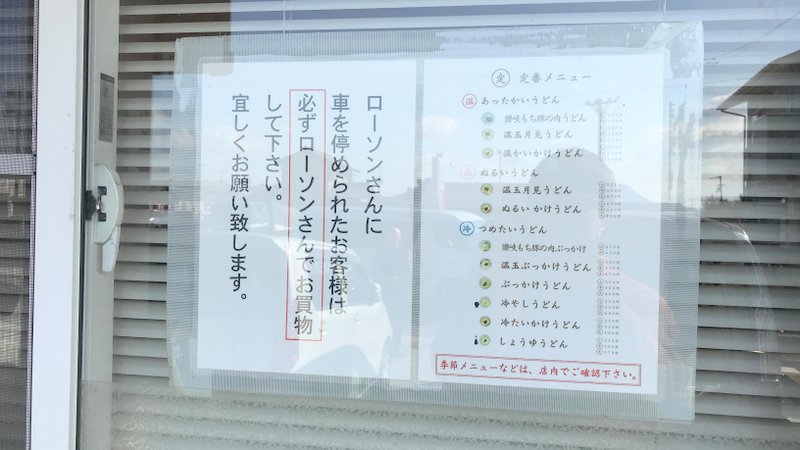 ローソンさんに
車を停められたお客様は
必ずローソンさんでお買物
して下さい。
宜しくお願い致します。
定 定番メニュー
温 あったかいうどん
讃岐もち豚の肉うどん
温玉月見うどん
温かいかけうどん
ぬ ぬるいうどん
温玉月見うどん
ぬるい かけうどん
冷 つめたいうどん
讃岐もち豚の肉ぶっかけ
温玉ぶっかけうどん
ぶっかけうどん
冷やしうどん
冷たいかけうどん
しょうゆうどん
季節メニューなどは、店内でご確認下さい。